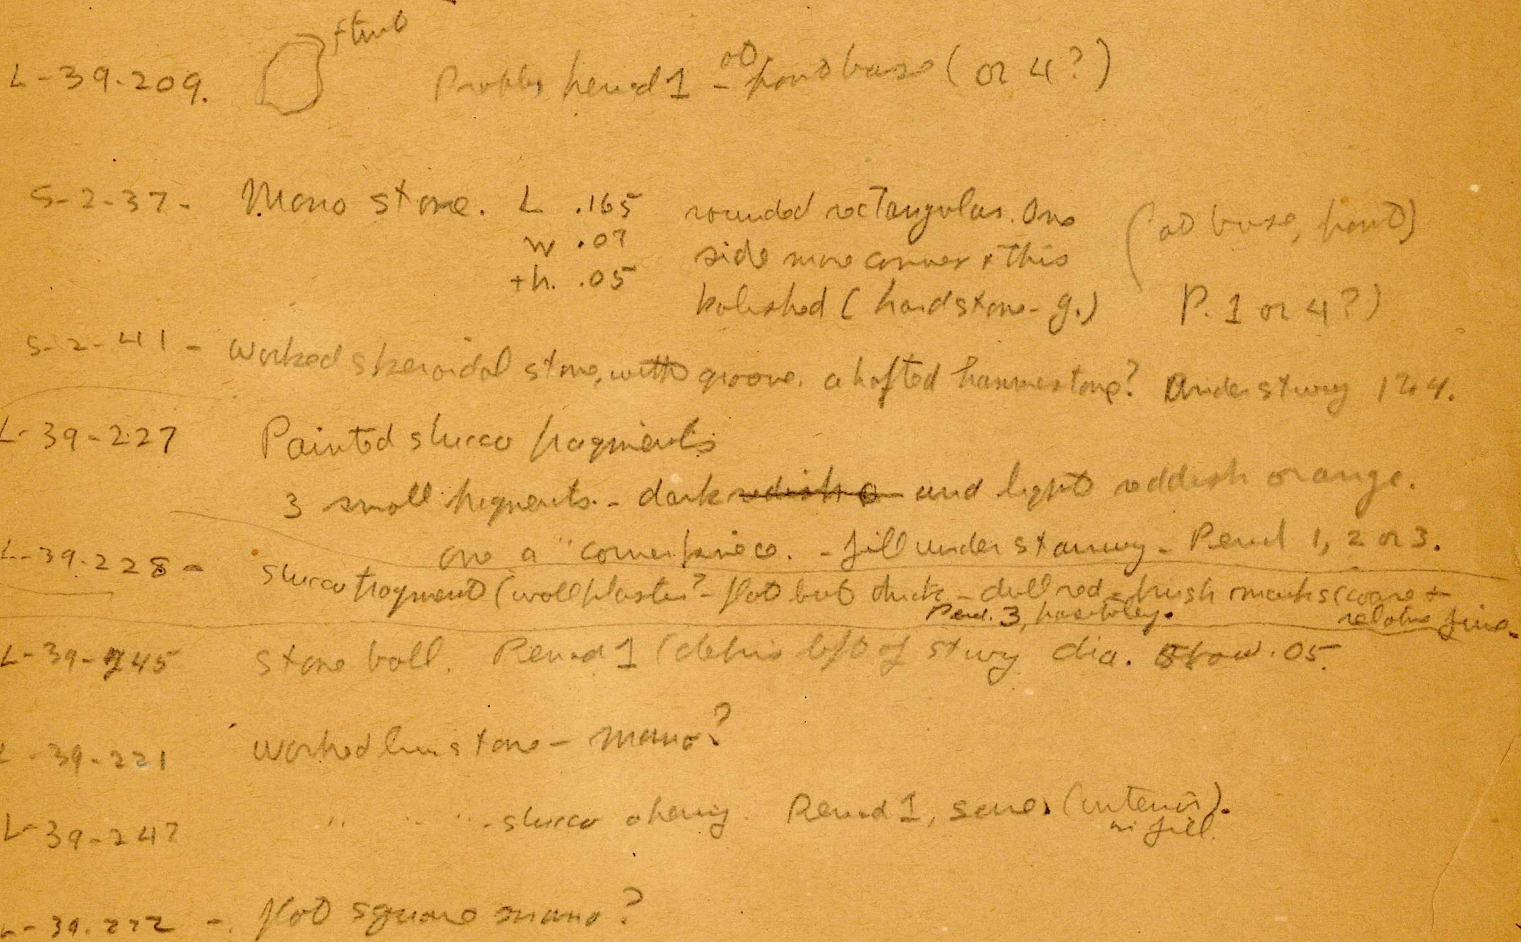 flint
L-39-209. Probably Period 1 - at front base (or 4?)
S-2-37- Mano stone. L .165 rounded rectangular. One (at base, front)
W .07 side more convex & this
th. .05 polished (hardstone - g.) P. 1 or 4?)
S-2-41 - Worked speroidal stone, with groove. a hafted hammerstone? Under stwy 1 4.
L-39-227 Painted stucco fragments
3 small fragments. - dark and light reddish orange.
one a "cornerpiece. - fill under stairway - Period 1, 2 or 3.
L-39-228 - stucco fragment (wall plaster? - flat but thick - dull red - brush marks (coarse +
Period. 3, possibley. relative fine-
L-39-245 stone ball. Period 1 (debris left of stwy dia. .05.
L-39-221 Worked limestone - mano?
L-39-247 " " " - stucco adhering. Period 1, same. (interior).
in fill.
L-39-222 - flat square mano?